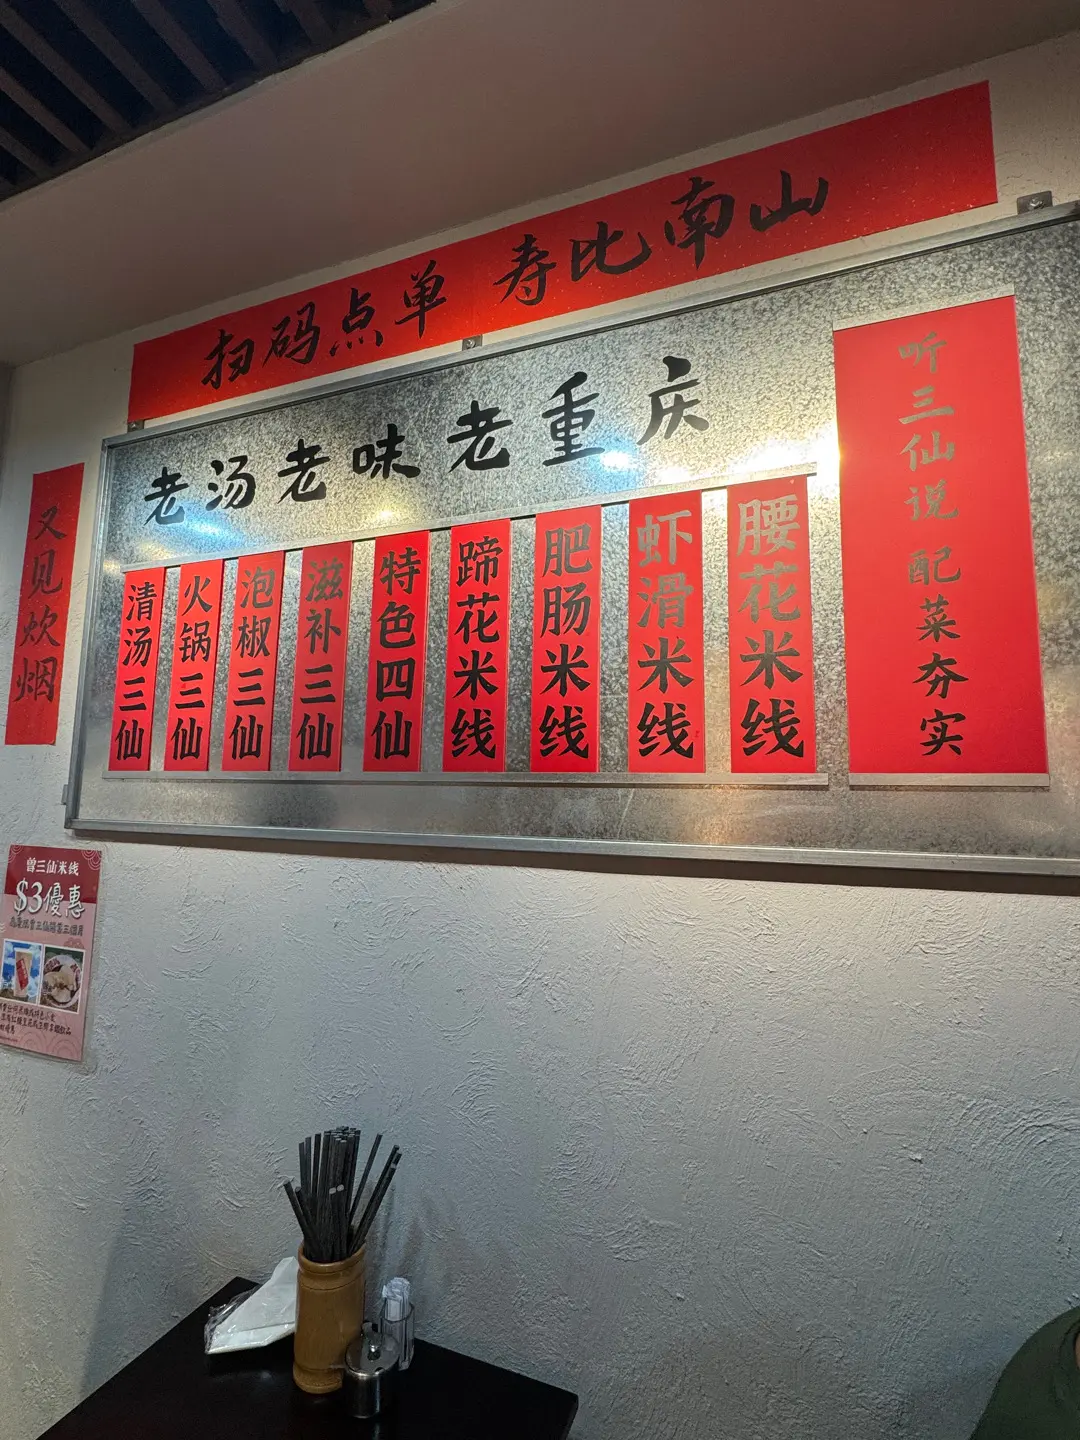 扫码点单 寿比南山
老汤老味老重庆
又见炊烟
清汤三仙
火锅三仙
泡椒三仙
滋补三仙
特色四仙
蹄花米线
肥肠米线
虾滑米线
腰花米线
听三仙说 配菜夯实
曾三仙米线
$3優惠